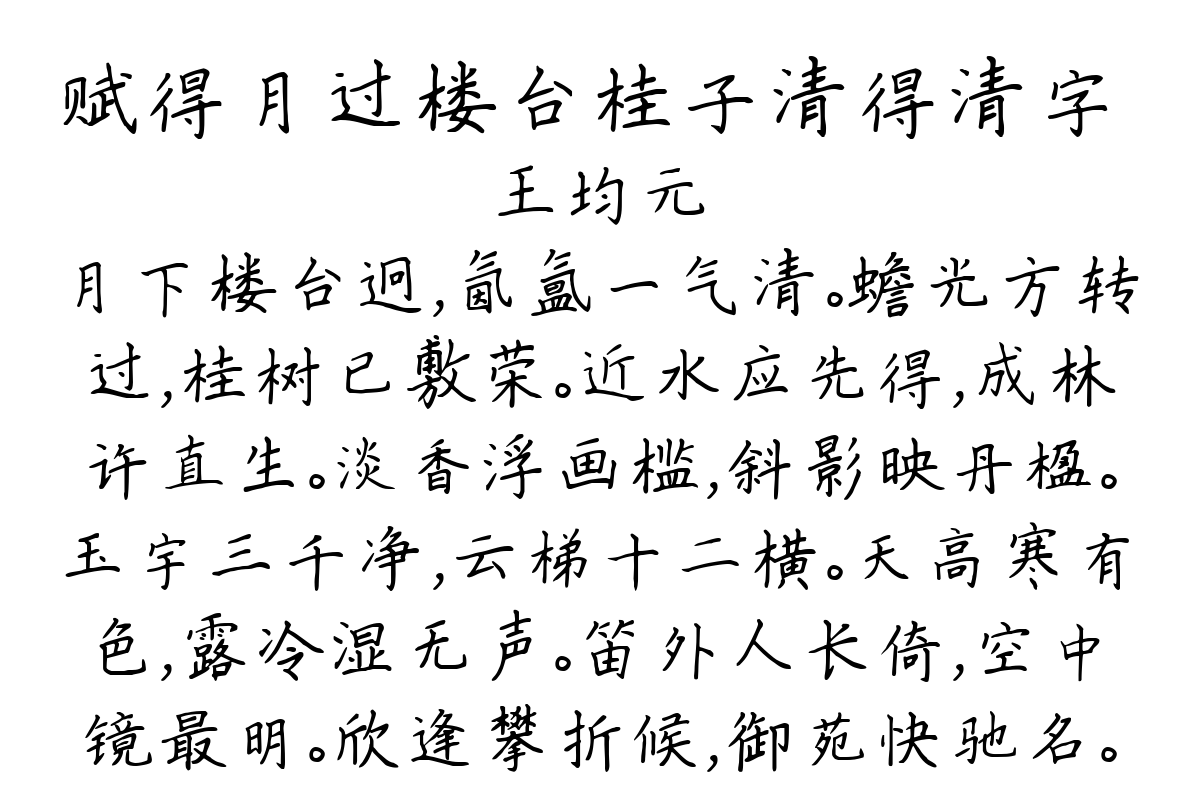 赋得月过楼台桂子清得清字
王均元
月下楼台迥,氤氲一气清。蟾光方转
过,桂树已敷荣。近水应先得,成林
许直生。淡香浮画槛,斜影映丹楹。
玉宇三千净,云梯十二横。天高寒有
色,露冷湿无声。笛外人长倚,空中
镜最明。欣逢攀折候,御苑快驰名。